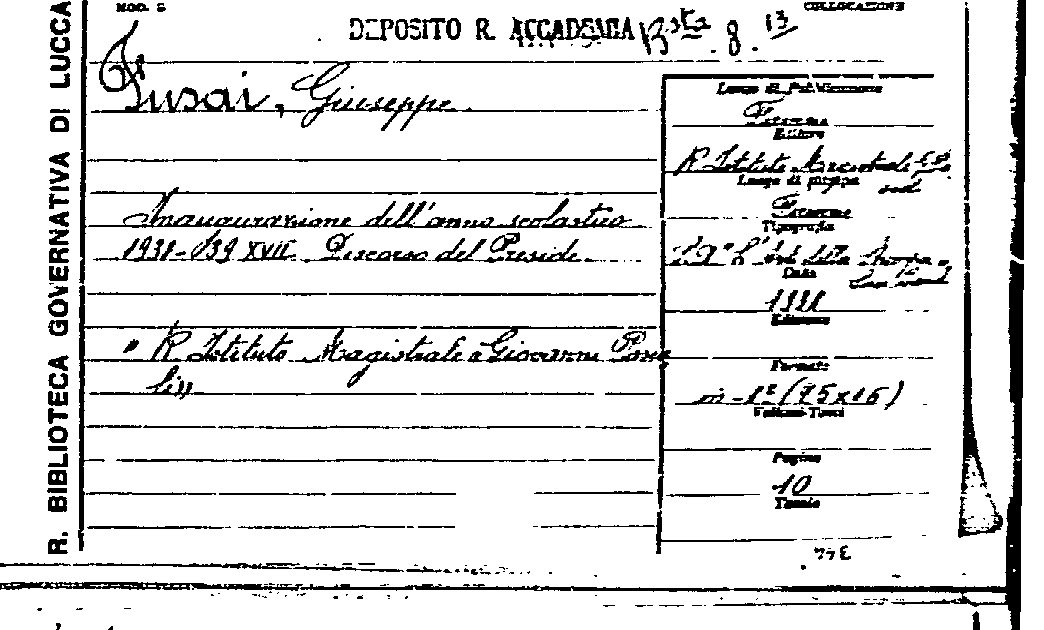 MOD. 5
COLLOCAZIONE
DEPOSITO R. ACCADEMIA Bsta. 8. 13
R. BIBLIOTECA GOVERNATIVA DI LUCCA
Fusai, Giuseppe.
Inaugurazione dell'anno scolastico
1938-139 XVII. Discorso del Preside.
" R Istituto Magistrale "Giovanni Pasco
li"
Luogo di Pubblicazione
Editore
R Istituto Magistrale
Luogo di stampa
Tipografia
L'Arte della Stampa
Data
1938
Edizione
Formato
in-1° (25x16)
Volumi-Tomi
Pagine
10
Tavole